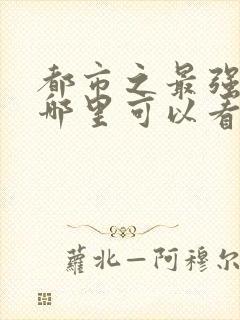 都市之最强
哪里可以看
蘿北—阿穆尔